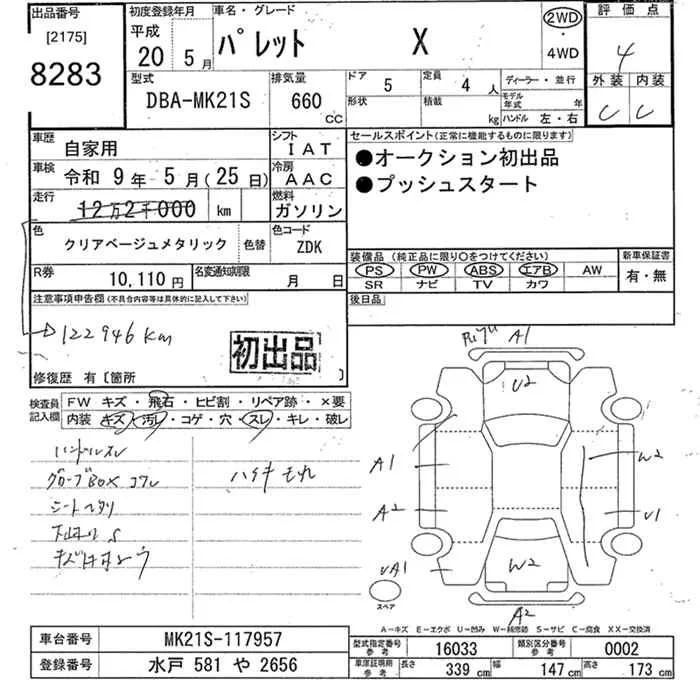 出品番号
[2175]
8283
初度登録年月
平成
20 5月
車名・グレード
パレット X
2WD
・
4WD
評価点
4
外装 内装
C C
型式
DBA-MK21S
排気量
660
CC
ドア 5
形状
定員 4 人
積載 kg
ディーラー・並行
モデル年式 年
ハンドル 左・右
車歴 自家用
シフト IAT
車検 令和 9年 5月(25日)
冷房 AAC
走行 12万2千000 km
燃料 ガソリン
色 クリアベージュメタリック 色替
色コード ZDK
R券 10,110円
名変通知期限 月 日
セールスポイント(正常に機能するものに限ります)
●オークション初出品
●プッシュスタート
装備品(純正品に限り○をつけてください)
PS PW ABS エアB AW
SR ナビ TV カワ
新車保証書
有・無
後日品
注意事項申告欄(不具合内容等は具体的に記入して下さい)
122946 km
初出品
修復歴 有〔箇所 〕
検査員記入欄
FW キズ・飛石・ヒビ割・リペア跡・×要
内装 キズ・汚レ・コゲ・穴・スレ・キレ・破レ
ハンドルスレ
グローブBOX コワレ
シートヘタリ
ハゲキモレ
A1
U2
A1
W2
A2
U1
W2
A2
スペア
A－キズ E－エクボ U－凹み W－補修跡 S－サビ C－腐食 XX－交換済
車台番号 MK21S-117957
登録番号 水戸 581 や 2656
型式指定番号 参考 16033
類別区分番号 参考 0002
車庫証明用 参考 長さ 339 cm 幅 147 cm 高さ 173 cm